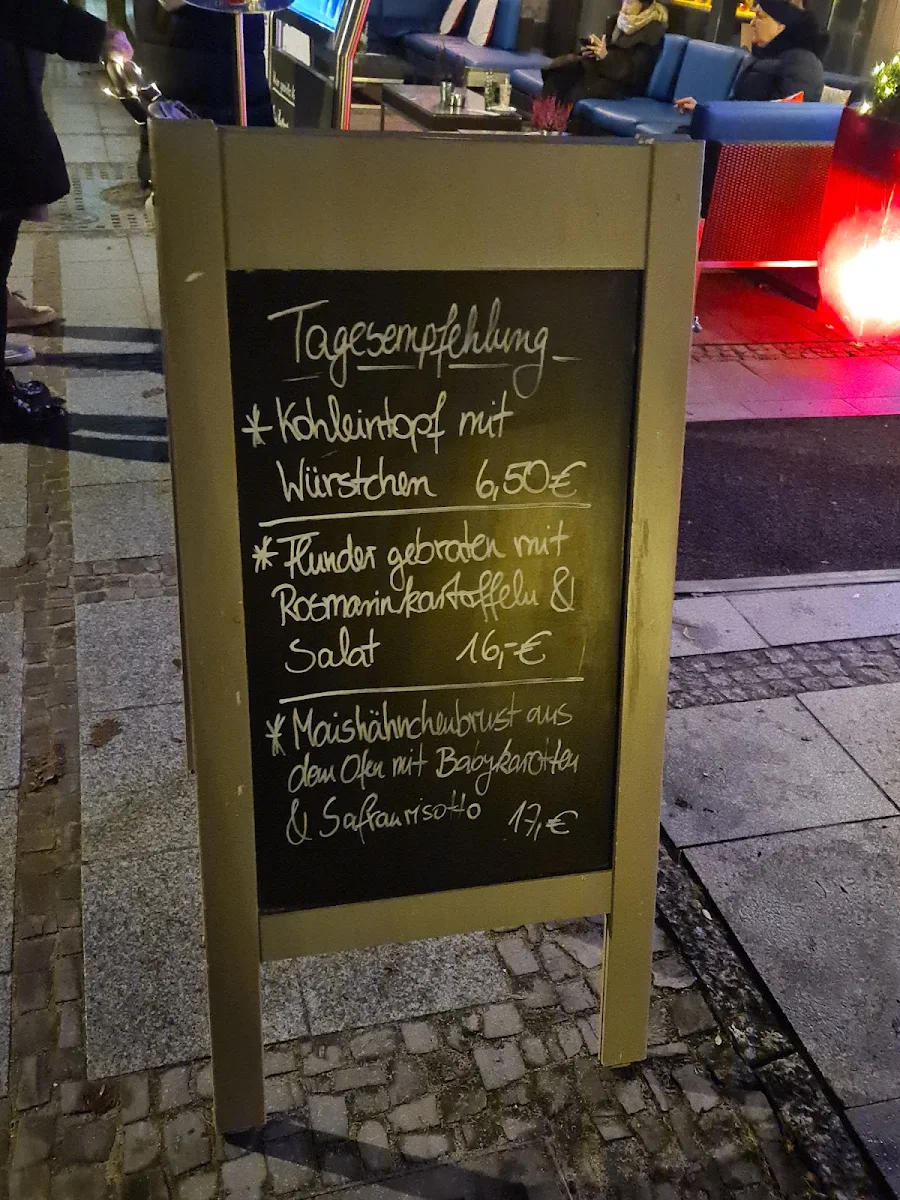 Tagesempfehlung
* Kohleintopf mit
Würstchen 6,50€
* Flunder gebraten mit
Rosmarinkartoffeln &
Salat 16,-€
* Maishähnchenbrust aus
dem Ofen mit Babykarotten
& Safranrisotto 17,-€